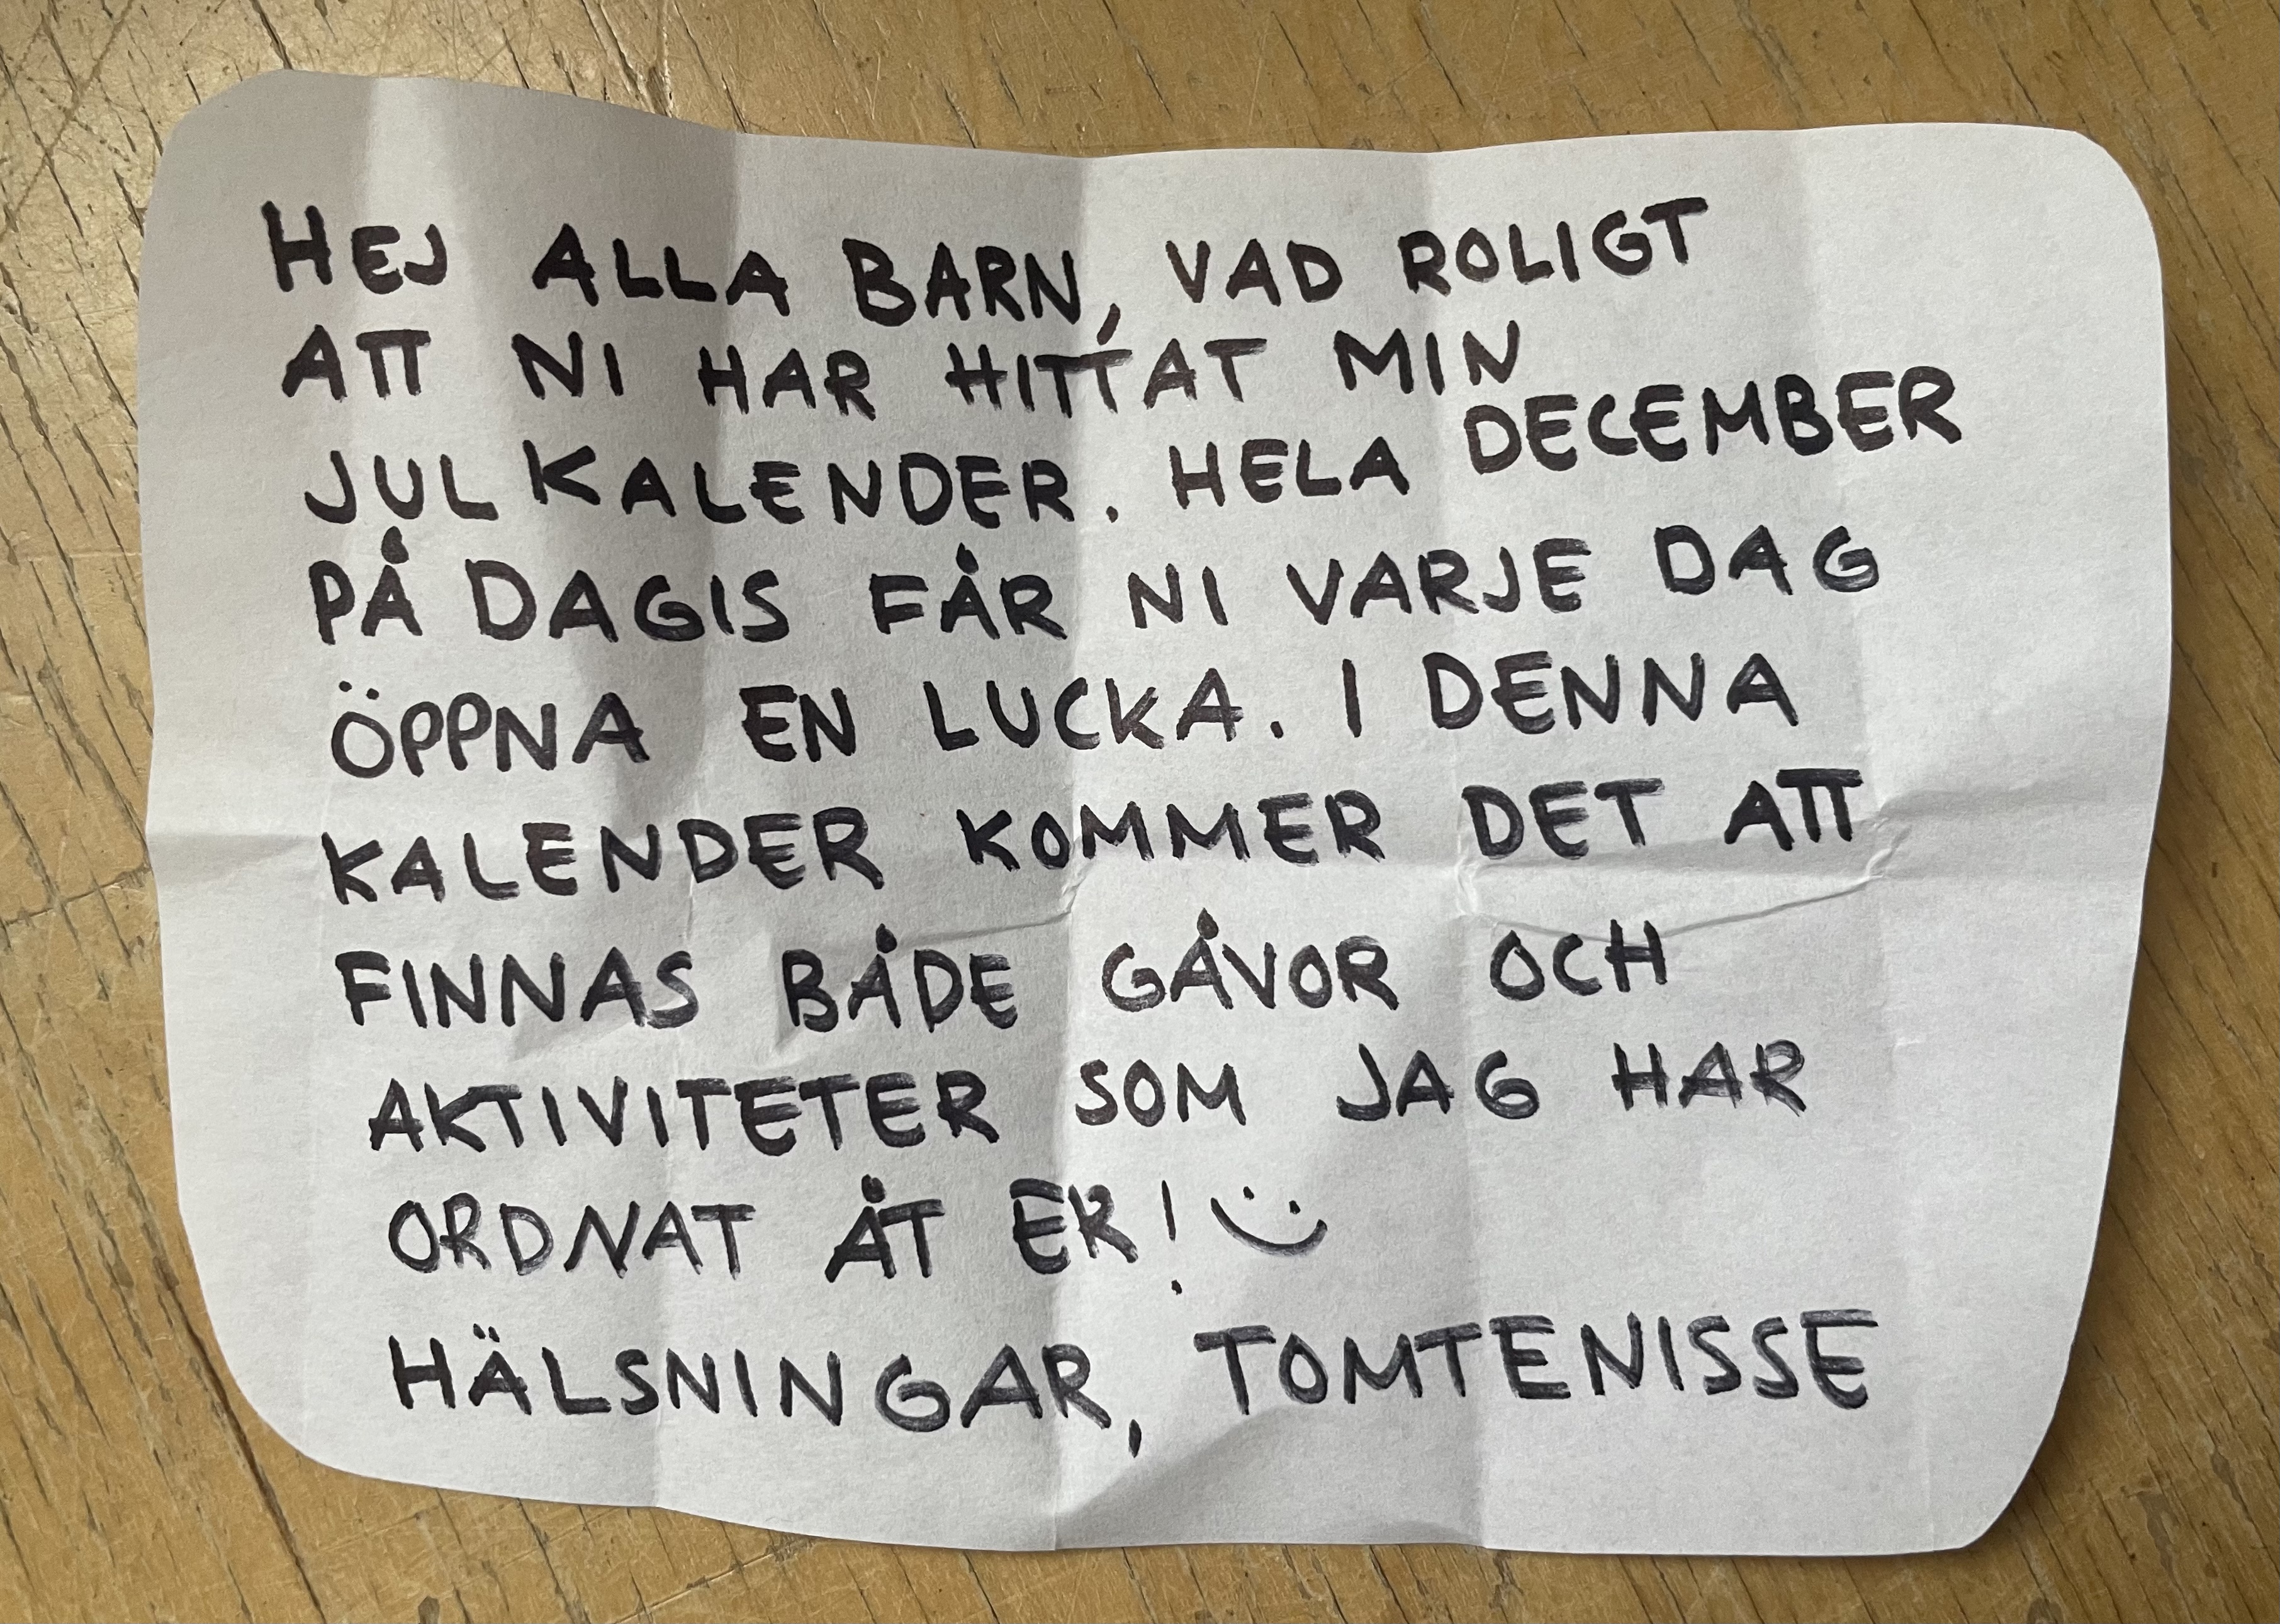 HEJ ALLA BARN, VAD ROLIGT
ATT NI HAR HITTAT MIN
JULKALENDER. HELA DECEMBER
PÅ DAGIS FÅR NI VARJE DAG
ÖPPNA EN LUCKA. I DENNA
KALENDER KOMMER DET ATT
FINNAS BÅDE GÅVOR OCH
AKTIVITETER SOM JAG HAR
ORDNAT ÅT ER! :)
HÄLSNINGAR, TOMTENISSE